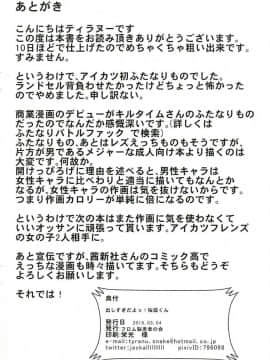 あとがき
こんにちはティラヌーです
この度は本書をお読み頂きありがとうございます。
10日ほどで仕上げたのでめちゃくちゃ粗い出来です。
すみません。
というわけで、アイカツ初ふたなりものでした。
ランドセル背負わせたかったけどちょっと怖かった
のでやめました、申し訳ない。
商業漫画のデビューがキルタイムさんのふたなりもの
だったのでなんだか感慨深いです。(詳しくは
ふたなりバトルファック で検索)
ふたなりもの、あとはレズえっちものもそうですが、
片方が男であるメジャーな成人向け本より描くのは
大変です。何故か。
開けっぴろげに理由を述べると、男性キャラは
女性キャラに比べわりと適当に描いてもなんとか
なるが、女性キャラの作画は気を抜けないからです。
つまり作画カロリーが単純に倍になるのです。
というわけで次の本はまた作画に気を使わなくて
いいオッサンに頑張って貰います。アイカツフレンズ
の女の子2人相手に。
あと宣伝ですが、茜新社さんのコミック高で
えっちな漫画も時々描いてます。そちらもどうぞ
よろしくお願いします。
それでは!
奥付
発行日
発行 フロム脳患者の会
印刷 栄光 様